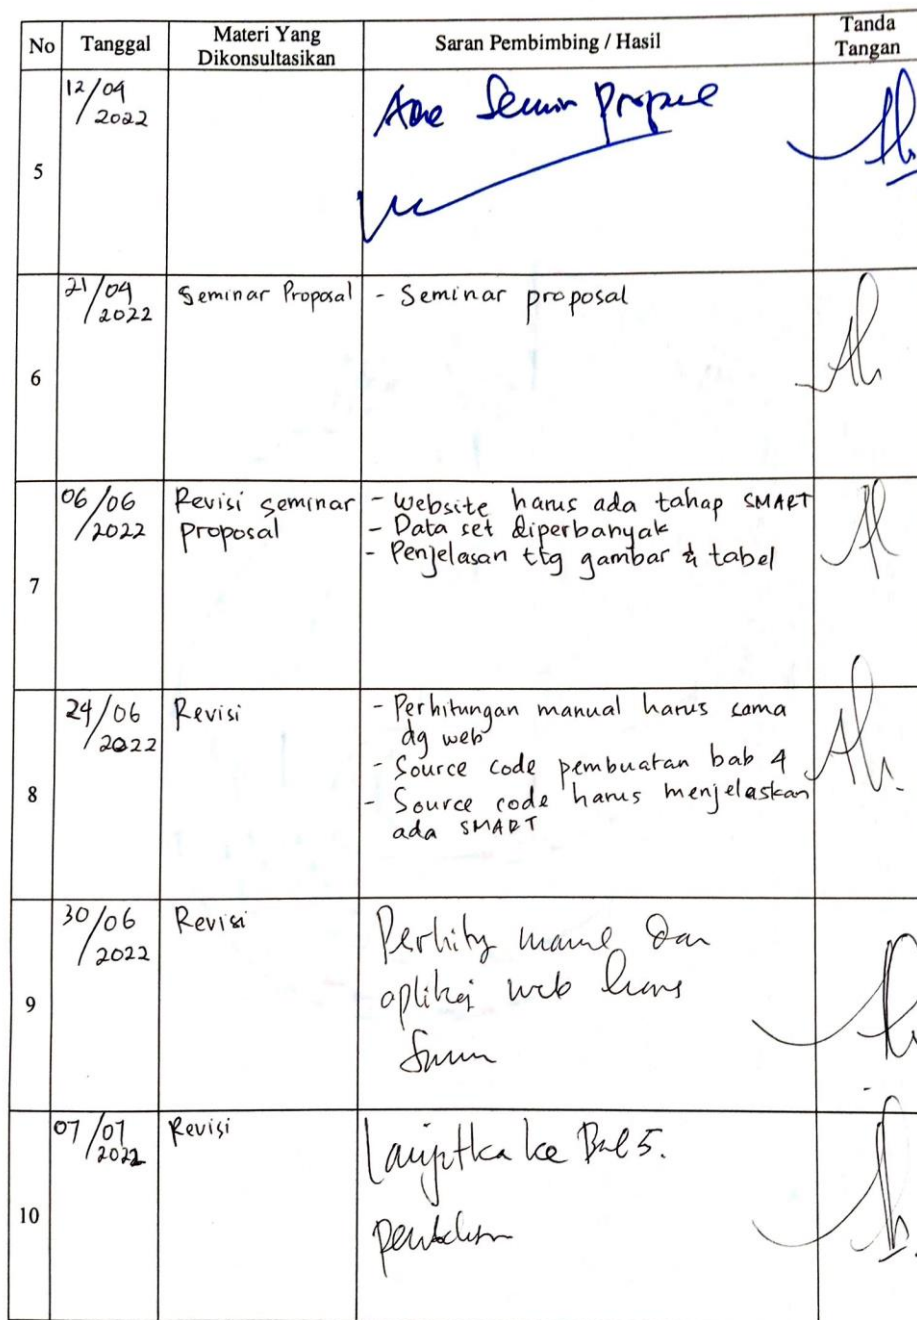 No Tanggal Materi Yang Dikonsultasikan Saran Pembimbing / Hasil Tanda Tangan
5
12/04
2022
Seminar Proposal
6
21/04
2022
Seminar Proposal
- Seminar proposal
7
06/06
2022
Revisi seminar
proposal
- Website harus ada tahap SMART
- Data set diperbanyak
- Penjelasan ttg gambar & tabel
8
24/06
2022
Revisi
- Perhitungan manual harus sama
dg web
- Source code pembuatan bab 4
- Source code harus menjelaskan
ada SMART
9
30/06
2022
Revisi
dan
web harus
10
07/07
2022
Revisi
Lanjutka ke Bab 5.